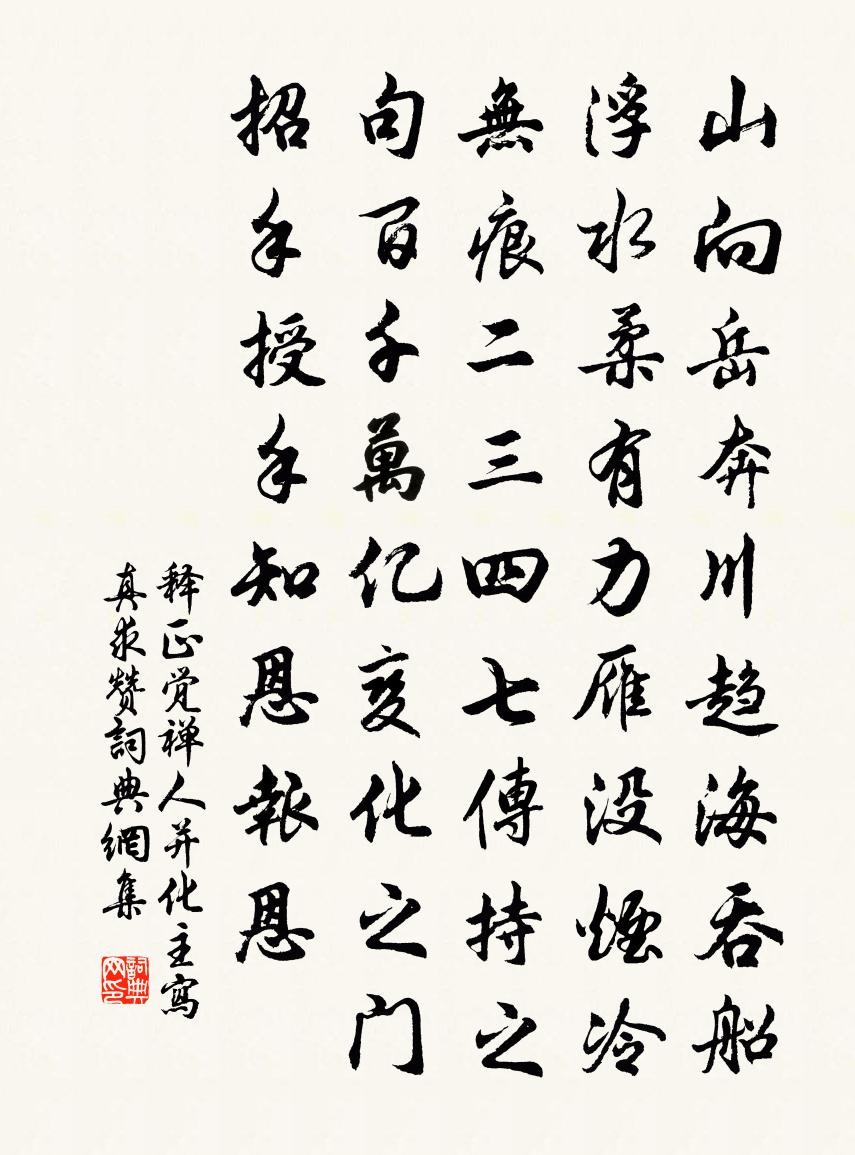 山向岳奔川趋海吞船
浮水柔有力雁没烟冷
無痕二三四七傳持之
句百千萬亿変化之门
招手授手知恩報恩
释正覚禅人并化主寫
真求赞詞典網集
詞典网印